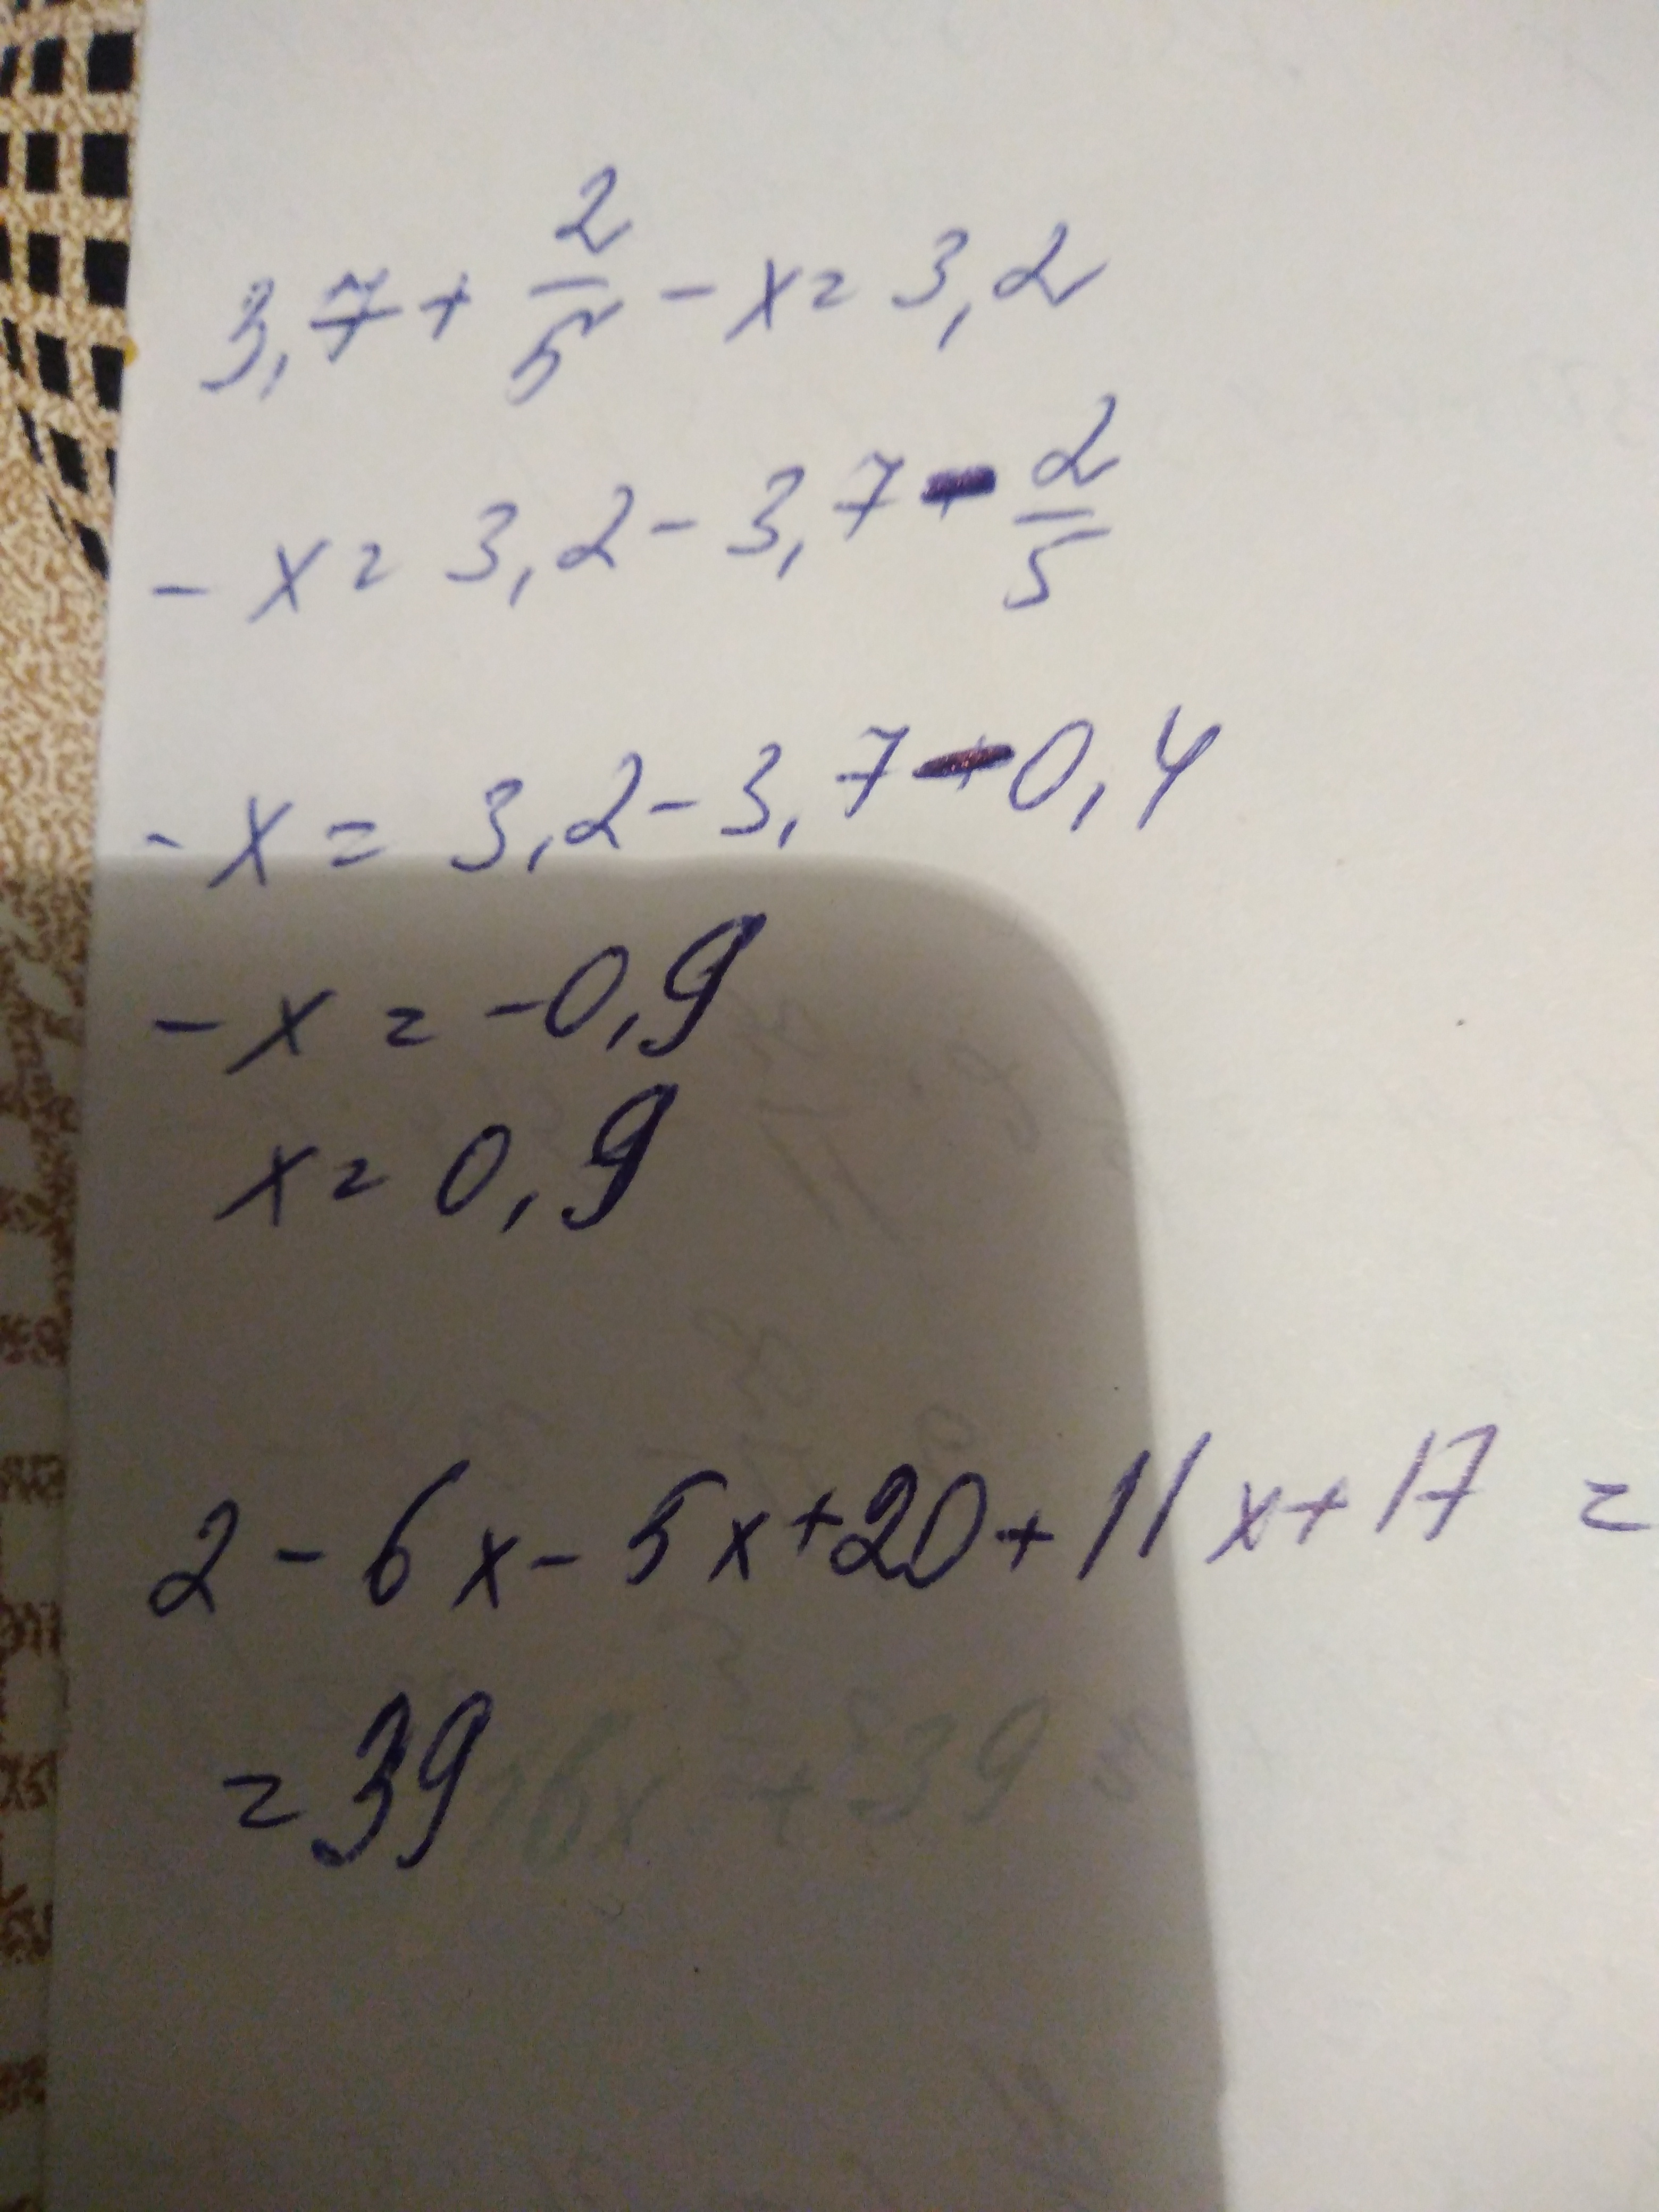 3,7 + 2/5 - x = 3,2
- x = 3,2 - 3,7 - 2/5
- x = 3,2 - 3,7 - 0,4
- x = -0,9
x = 0,9
2 - 6x - 5x + 20 + 11x + 17 =
= 39 16x + 39